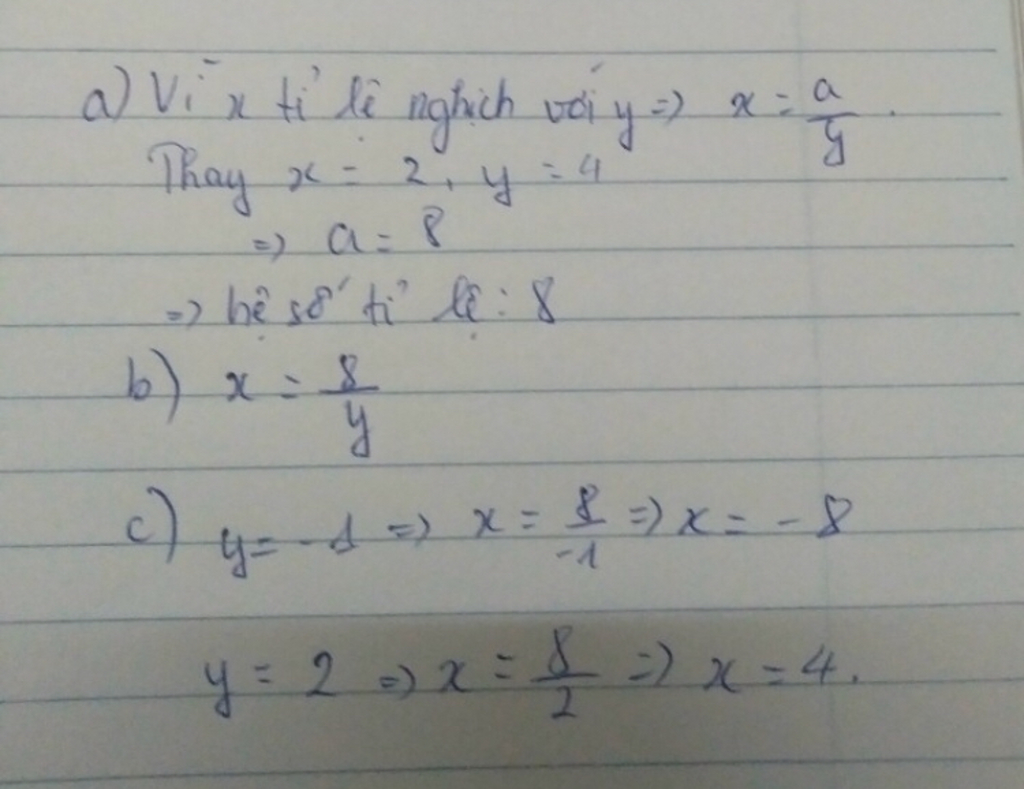 a) Vì x tỉ lệ nghịch với y => x = a/y.
Thay x = 2, y = 4
=> a = 8
=> hệ số tỉ lệ : 8
b) x = 8/y
c) y = -1 => x = 8/-1 => x = -8
y = 2 => x = 8/2 => x = 4.